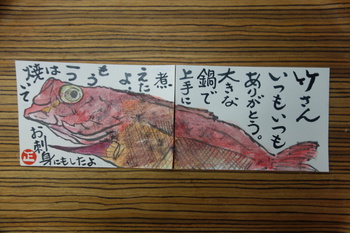 竹さん
いつもいつも
ありがとう。
大きな
鍋で
上手に
煮
えた
よ、
もう
一つ
は
焼いて
お刺
身にもしたよ
正